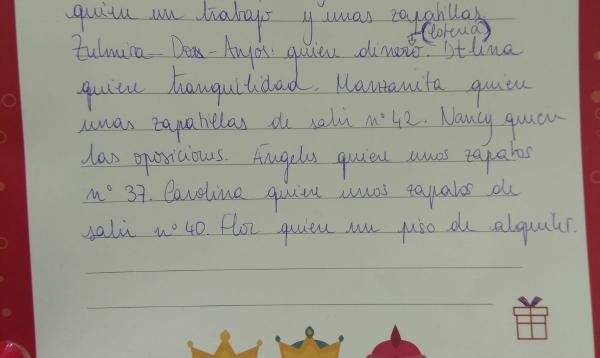 quiere un trabajo y unas zapatillas.
(lotería)
Zulmira Dos Anjos: quiere dinero. Etlina
quiere tranquilidad. Manzanita quiere
unas zapatillas de salir nº 42. Nancy quiere
las oposiciones. Ángeles quiere unos zapatos
nº 37. Carolina quiere unos zapatos de
salir nº 40. Flor quiere un piso de alquiler.